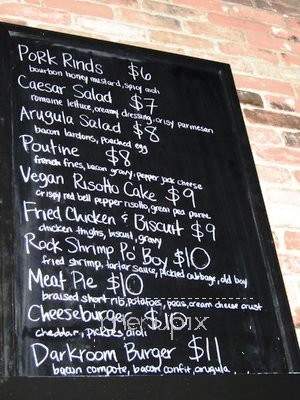 Pork Rinds $6
bourbon honey mustard, spicy aioli
Caesar Salad $7
romaine lettuce, creamy dressing, crispy parmesan
Arugula Salad $8
bacon lardons, poached egg
Poutine $8
french fries, bacon gravy, pepper jack cheese
Vegan Risotto Cake $9
crispy red bell pepper risotto, green pea puree
Fried Chicken & Biscuit $9
chicken thighs, biscuit, gravy
Rock Shrimp Po' Boy $10
fried shrimp, tartar sauce, pickled cabbage, old bay
Meat Pie $10
braised short rib, potatoes, peas, cream cheese crust
Cheeseburger $10
cheddar, pickles, aioli
Darkroom Burger $11
bacon compote, bacon confit, arugula